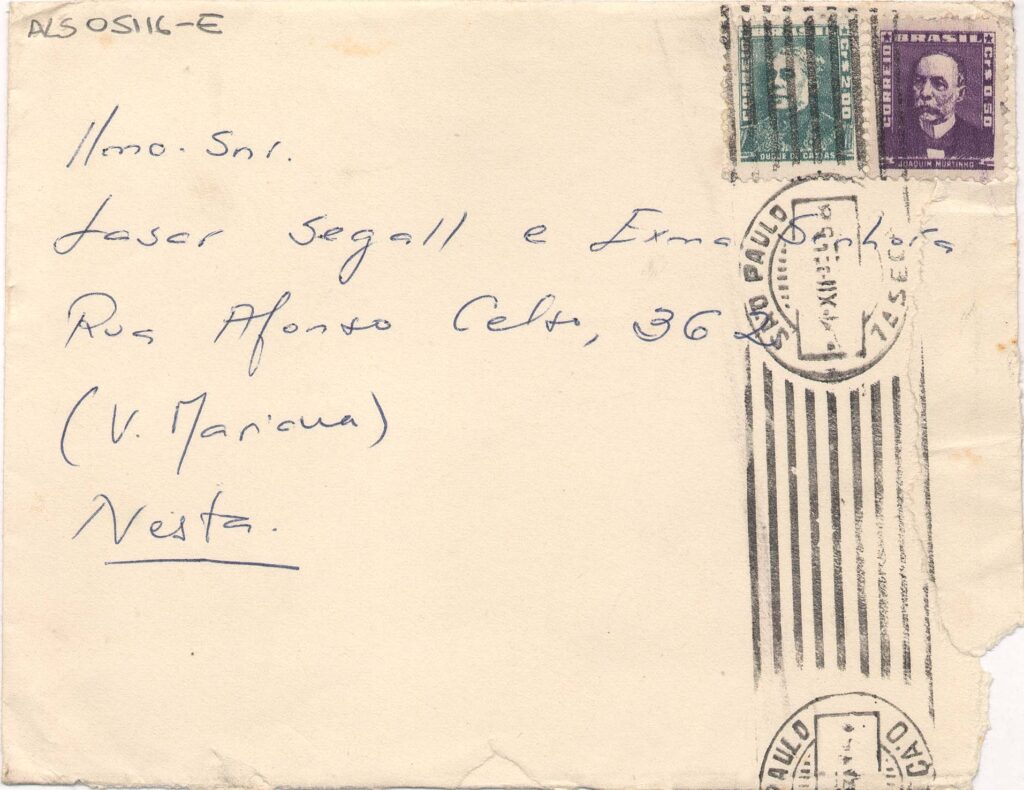 ALS 05116-E
CORREIO BRASIL Cr$ 2,00
DUQUE DE CAXIAS
CORREIO BRASIL Cr$ 0,50
JOAQUIM MURTINHO
Ilmo. Snr.
Lasar Segall e Exma Senhora
Rua Afonso Celso, 362
(V. Mariana)
Nesta.
SÃO PAULO
7ª SEC
PAULO